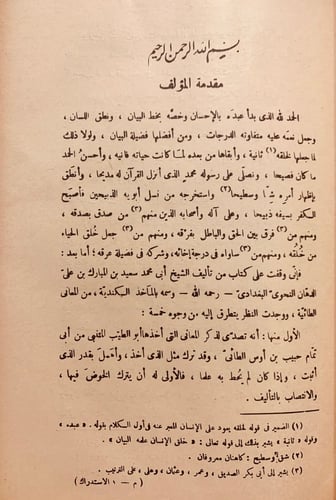 بسم الله الرحمن الرحيم
مقدمة المؤلف
الحمد لله الذى بدأ عبده بالإحسان وخصّه بخط البيان ، ونطق اللسان ،
وجعل نعمه عليه متفاوتة الدرجات ، ومن أفضلها فضيلة البيان ، ولولا ذلك
ما جعلها لخلقه (١) ثانية ، وأبقاها من بعده لما كانت حياته فانيه ، وأحسنُ الحمد
ما كان فصيحا ، ونصلّى على رسوله محمد الذى أنزل القرآن له مديحا ، وأنطق
بإظهار أمره شِقًّا وسطيحا (٢) واستخرجه من نسل أبويه الذبيحين فأصبح
الكفر بسيفه ذبيحا ، وعلى آله وأصحابه الذين منهم (٣) من صدق بصدقه ،
ومنهم من (٣) فرق بين الحق والباطل بفَرْقه ، ومنهم من (٣) جعل خُلق الحياء من
خُلقه ، ومنهم من (٣) ساواه فى درجة إخائه ، وشركه فى فضيلة عرقه ؛ أما بعد :
فإنى وقفت على كتاب من تأليف الشيخ أبى محمد سعيد بن المبارك بن على
الدهّان النحوىّ البغدادىّ — رحمه الله — وسمه بالمآخذ الكندية ، من المعانى
الطائيّة ، ووجدت النظر يتطرق إليه من وجوه خمسة :
الأول منها : أنه تصدّى لذكر المعانى التى أخذها أبو الطيّب المتنبى من أبى
تمّام حبيب بن أوس الطائىّ ، وقد ترك مثل الذى أخذ ، وأهملَ بقدر الذى
أثبت ، وإذا كان لم يُحط به علما ، فالأولى له أن يترك الخوض فيها ،
والانتصاب بالتأليف .
(١) الضمير فى قوله لخلقه يعود على الإنسان المعبر عنه فى أول الكلام بقوله . « عبده »
وقوله « ثانية » يشير بذلك إلى قوله تعالى : « خلق الإنسان علمه البيان » .
(٢) شق وسطيح : كاهنان معروفان .
(٣) يشير إلى أبى بكر الصديق ، وعمر ، وعثمان ، وعلى ، على الترتيب .
( م — ١ الاستدراك )